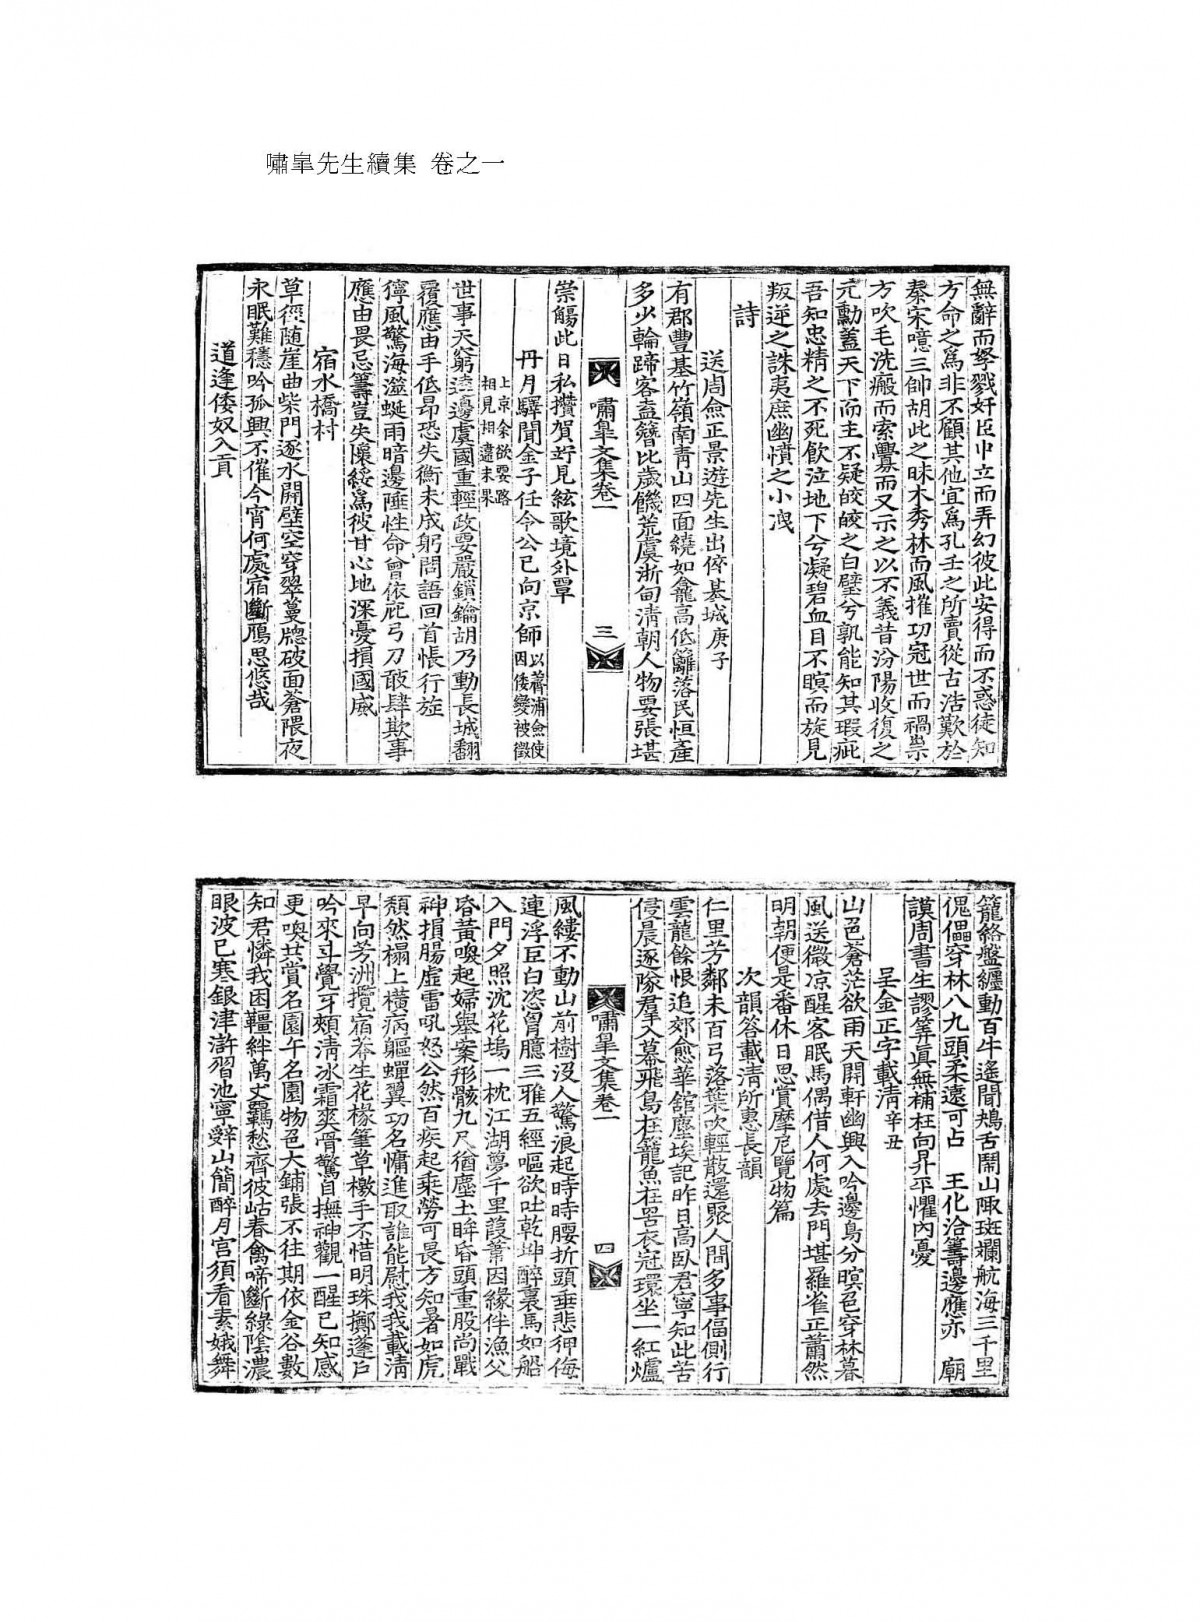 嘯皐先生續集 卷之一
無辭而孥戮奸臣中立而弄幻彼此安得而不惑徒知
方命之爲非不顧其他宜爲孔壬之所賣從古浩歎於
秦宋噫三帥胡此之昧木秀林而風摧功冠世而禍祟
方吹毛洗瘢而索釁而又示之以不義昔汾陽收復之
元勳蓋天下而主不疑皎皎之白璧兮孰能知其瑕疵
吾知忠精之不死飮泣地下兮凝碧血目不瞑而旋見
叛逆之誅夷庶幽憤之小洩
詩
送周僉正景遊先生出倅基城庚子
有郡豊基竹嶺南靑山四面繞如龕高低籬落民恒產
多少輪蹄客盍簪比歲饑荒虞浙甸淸朝人物要張堪
嘯皐文集卷一
三
崇觴此日私攢賀好見絃歌境外覃
丹月驛聞金子任令公已向京師以薺浦僉使因倭變被徵
上京余欲要路相見相違未果
世事天窮逵邊虞國重輕政要嚴鎖鑰胡乃動長城翻
覆應由手低昂恐失衡未成躬問語回首悵行旌
儜風驚海溢蜒雨暗邊陲性命曾依庇弓刀敢肆欺事
應由畏忌籌豈失懷綏爲彼甘心地深憂損國威
宿水橋村
草徑随崖曲柴門逐水開壁空穿翠蔓牕破面蒼隈夜
永眠難穩吟孤興不催今宵何處宿斷鴈思悠哉
道逢倭奴入貢
籠絡盤纏動百牛遙聞鴂舌鬧山陬斑斕航海三千里
傀儡穿林八九頭柔遠可占 王化洽籌邊應亦 廟
謨周書生謬筭眞無補枉向昇平懼內憂
呈金正字載淸辛丑
山邑蒼茫欲雨天開軒幽興入吟邊鳥分暝色穿林暮
風送微凉醒客眠馬偶借人何處去門堪羅雀正蕭然
明朝便是番休日思賞摩尼覽物篇
次韻答載淸所惠長韻
仁里芳鄰未百弓落葉吹輕散還聚人間多事偪側行
雲龍餘恨追郊愈華舘塵埃記昨日高臥君寧知此苦
侵晨逐隊羣入幕飛鳥在籠魚在罟衣冠環坐一紅爐
嘯皐文集卷一
四
風縷不動山前樹沒人驚浪起時時腰折頭垂悲狎侮
連浮叵白恣胷臆三雅五經嘔欲吐乾坤醉裏馬如船
入門夕照沈花塢一枕江湖夢千里葭葦因緣伴漁父
昏黃喚起婦擧案形骸九尺猶塵土眸昏頭重股尙戰
神損腸虛雷吼怒公然百疾起乘勞可畏方知暑如虎
頹然榻上横病軀蟬翼功名慵進取誰能慰我我載淸
早向芳洲攬宿莽生花椽筆草檄手不惜明珠擲蓬戶
吟來斗覺牙頰淸冰霜爽骨驚自撫神觀一醒已知感
更喚共賞名園午名園物色大鋪張不往期依金谷數
知君憐我困韁絆萬丈羈愁齊彼岵春禽啼斷綠陰濃
眼波已寒銀津滸習池寧辭山簡醉月宮須看素娥舞